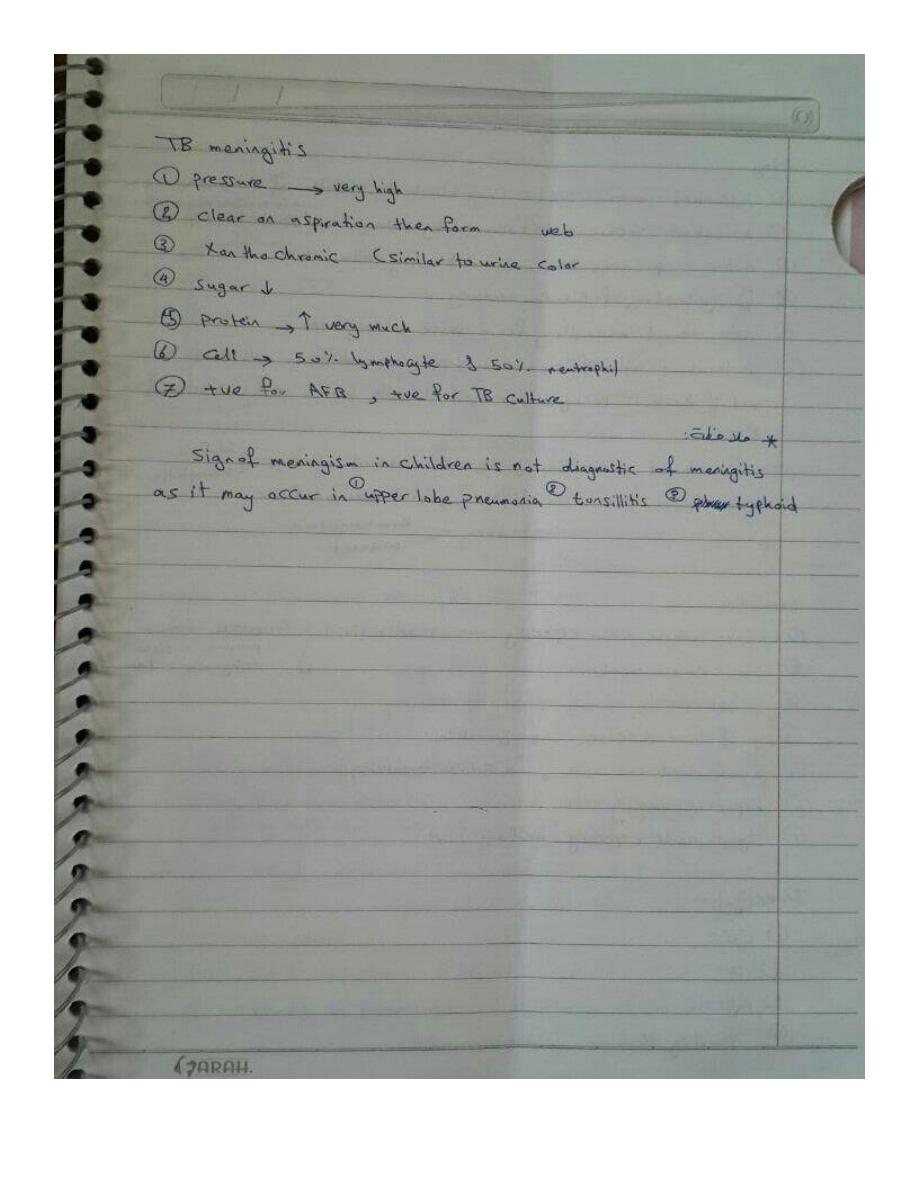 TB meningitis
① pressure → very high
② clear on aspiration then form web
③ Xanthochromic (similar to urine color
④ sugar ↓
⑤ protein → ↑ very much
⑥ cell → 50% lymphocyte & 50% neutrophil
⑦ +ve for AFB, +ve for TB culture
* ملاحظة:
Sign of meningism in children is not diagnostic of meningitis
as it may occur in ① upper lobe pneumonia ② tonsillitis ③ typhoid
SARAH.